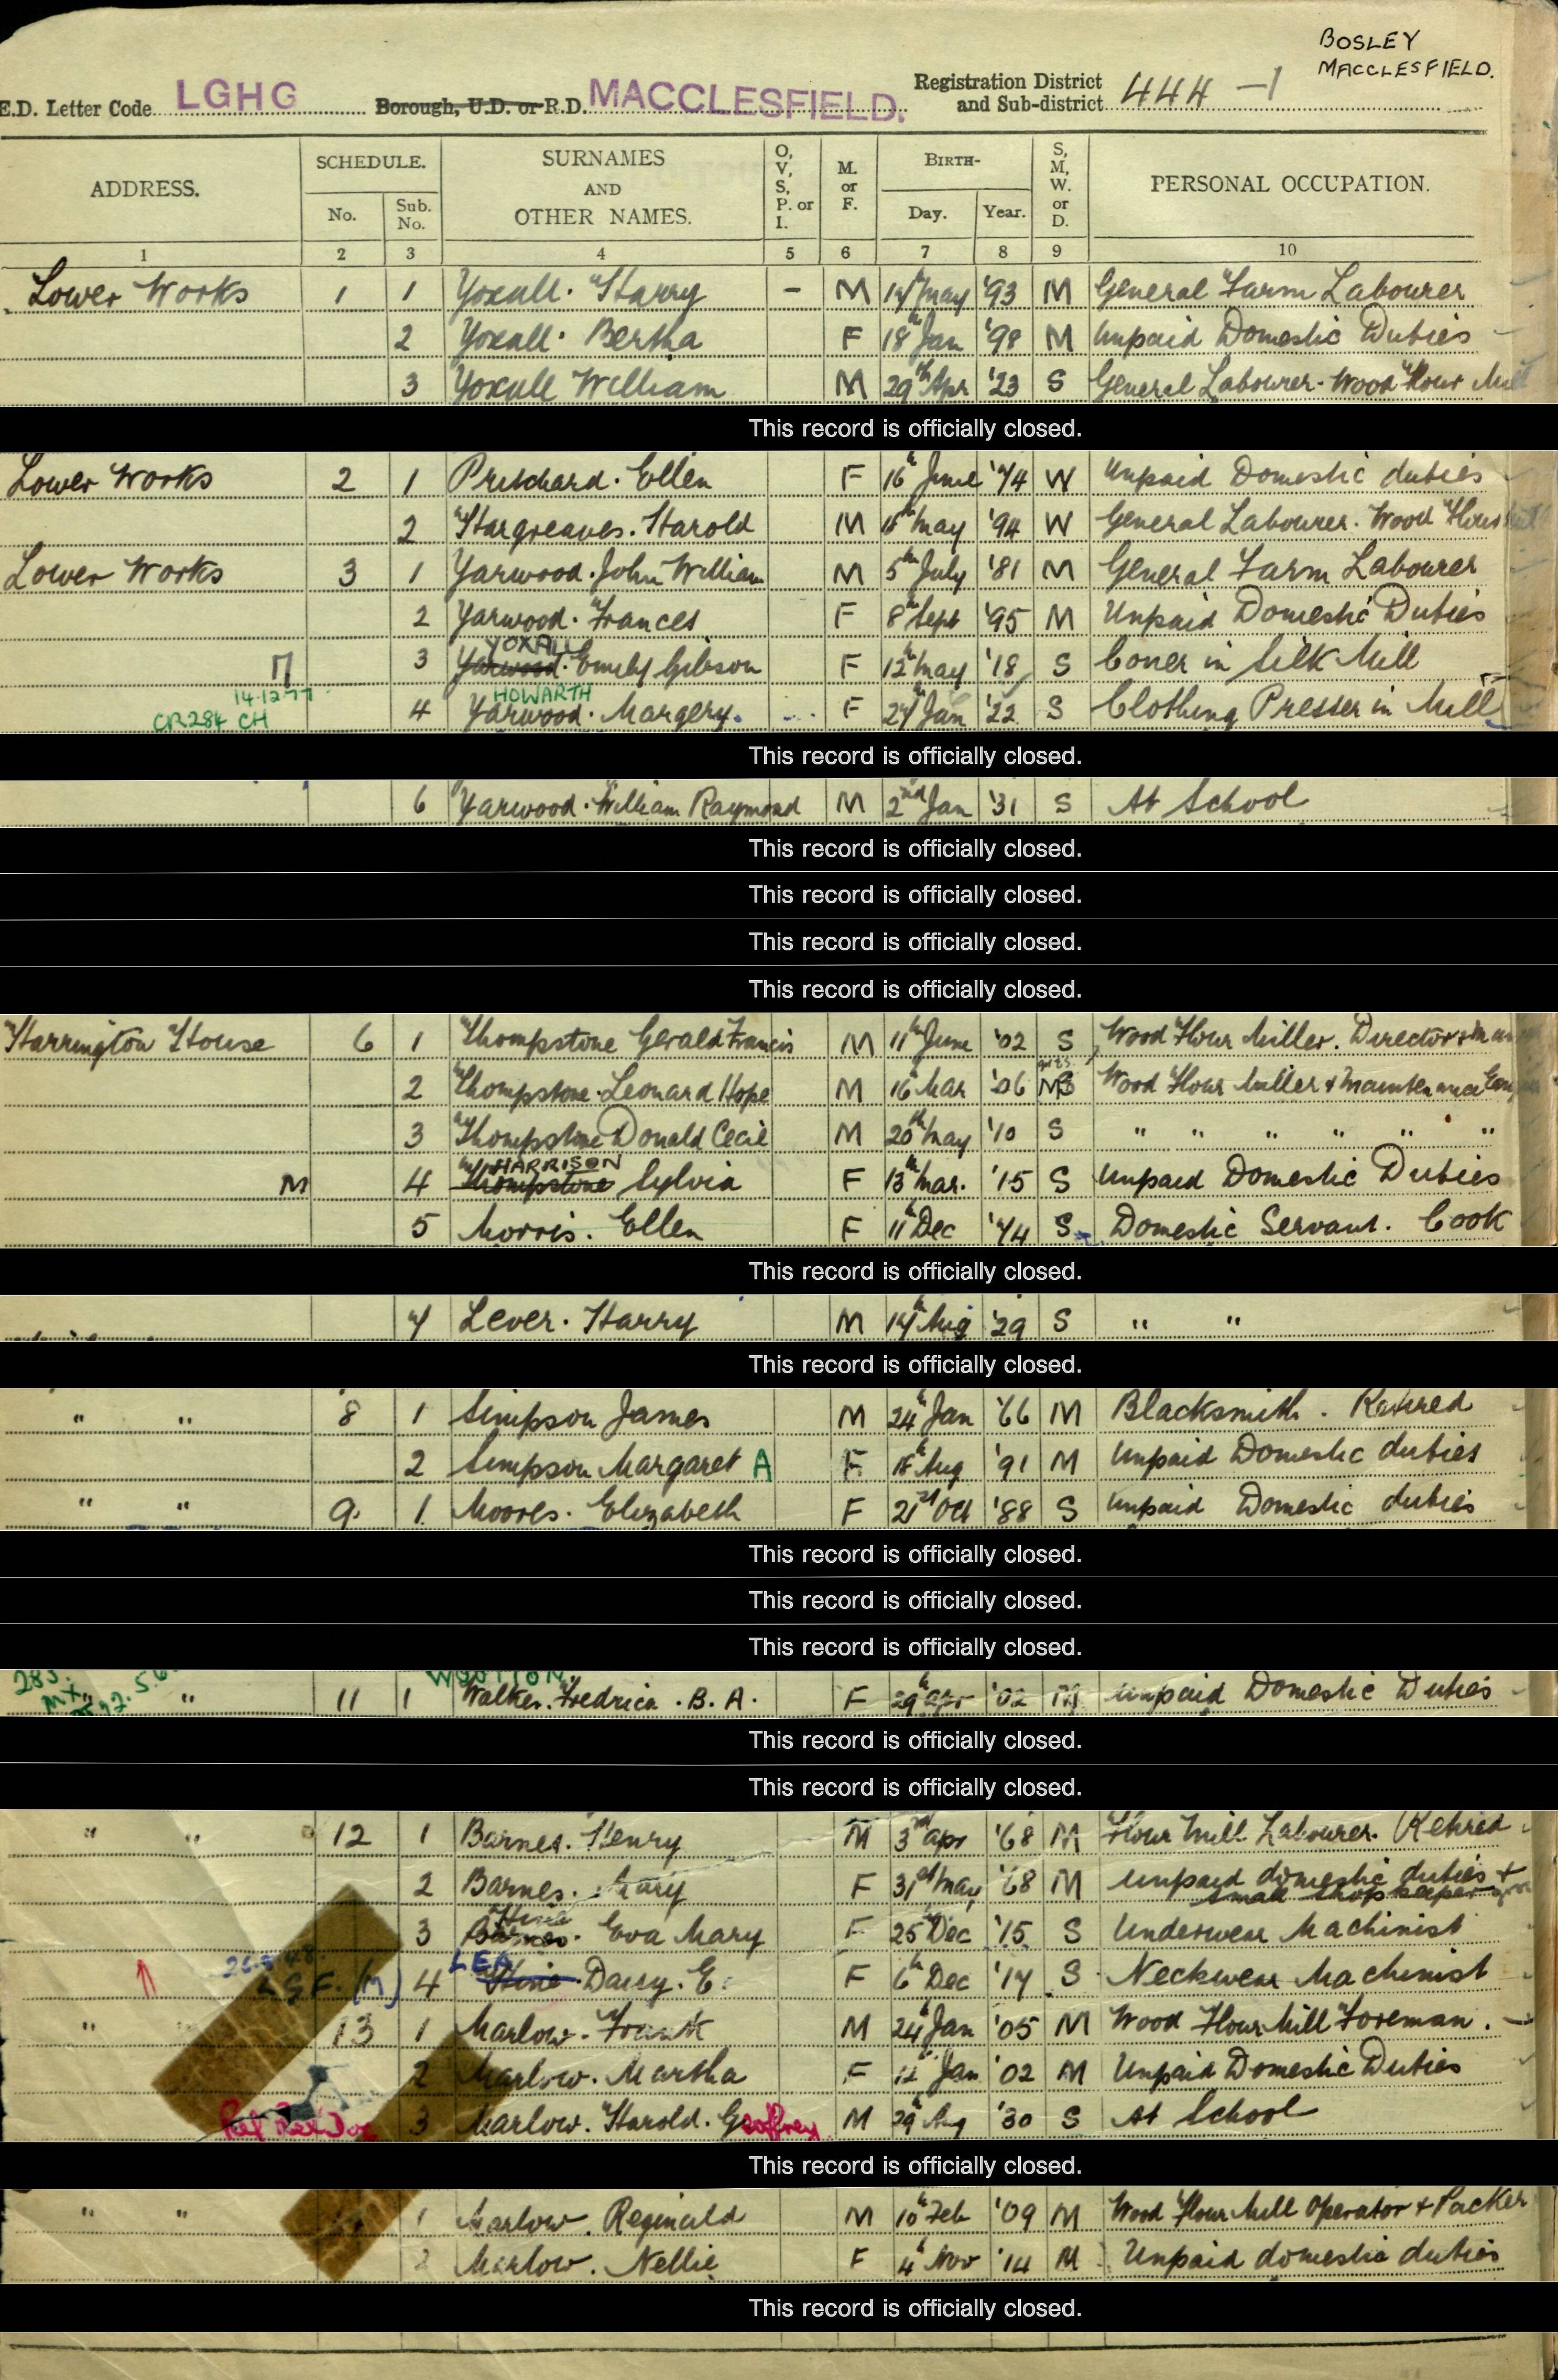 BOSLEY
MACCLESFIELD.
E.D. Letter Code LGHG Borough, U.D. or R.D. MACCLESFIELD. Registration District and Sub-district 444-1
ADDRESS. SCHEDULE. No. Sub. No. SURNAMES AND OTHER NAMES. O, V, S, P. or I. M. or F. BIRTH- Day. Year. S, M, W. or D. PERSONAL OCCUPATION.
1 2 3 4 5 6 7 8 9 10
Lower Works 1 1 Yoxall. Harry - M 14th May '93 M General Farm Labourer
2 Yoxall. Bertha F 18th Jan '98 M Unpaid Domestic Duties
3 Yoxall William M 29th Apr '23 S General Labourer. Wood Flour Mill
This record is officially closed.
Lower Works 2 1 Pritchard. Ellen F 16th June '74 W Unpaid Domestic duties
2 Hargreaves. Harold M May '94 W General Labourer. Wood Flour
Lower Works 3 1 Yarwood. John William M 5th July '81 M General Farm Labourer
2 Yarwood. Frances F 8th Sept '95 M Unpaid Domestic Duties
YOXALL
3 Yarwood. Emily Gibson F 12th May '18 S Coner in Silk Mill
14.12.77 HOWARTH
CR284 CH 4 Yarwood. Margery. F 27th Jan '22 S Clothing Presser in Mill
This record is officially closed.
6 Yarwood. William Raymond M 2nd Jan '31 S At School
This record is officially closed.
This record is officially closed.
This record is officially closed.
This record is officially closed.
Harrington House 6 1 Thompstone Gerald Francis M 11th June '02 S Wood Flour Miller. Director
2 Thompstone. Leonard Hope M 16th Mar '06 M Wood Flour Miller & Maintenance
3 Thompstone Donald Cecil M 20th May '10 S " " " " " "
HARRISON
M 4 Thompstone Sylvia F 13th Mar. '15 S Unpaid Domestic Duties
5 Morris. Ellen F 11th Dec '74 S Domestic Servant. Cook
This record is officially closed.
7 Lever. Harry M 14th Aug '29 S " "
This record is officially closed.
" " 8 1 Simpson James M 24th Jan '66 M Blacksmith. Retired
2 Simpson Margaret A F 18th Aug '91 M Unpaid Domestic duties
" " 9. 1 Moores. Elizabeth F 21st Oct '88 S Unpaid Domestic duties
This record is officially closed.
This record is officially closed.
This record is officially closed.
" 11 1 Walker. Fredrica. B. A. F 29th Apr '02 M Unpaid Domestic Duties
This record is officially closed.
This record is officially closed.
" " 12 1 Barnes. Henry M 3rd Apr '68 M Flour Mill Labourer. Retired
2 Barnes. Mary F 31st May '68 M unpaid domestic duties +
small shopkeeper
Hine
3 Barnes. Eva Mary F 25th Dec '15 S Underwear Machinist
LEA
4 Hine. Daisy. E. F 6th Dec '17 S Neckwear Machinist
" 13 1 Marlow. Frank M 24th Jan '05 M Wood Flour Mill Foreman.
2 Marlow. Martha F 12th Jan '02 M Unpaid Domestic Duties
3 Marlow. Harold. Geoffrey M 29th Aug '30 S At School
This record is officially closed.
" " 1 Marlow. Reginald M 10th Feb '09 M Wood Flour Mill Operator + Packer
2 Marlow. Nellie F 4th Nov '14 M Unpaid domestic duties
This record is officially closed.